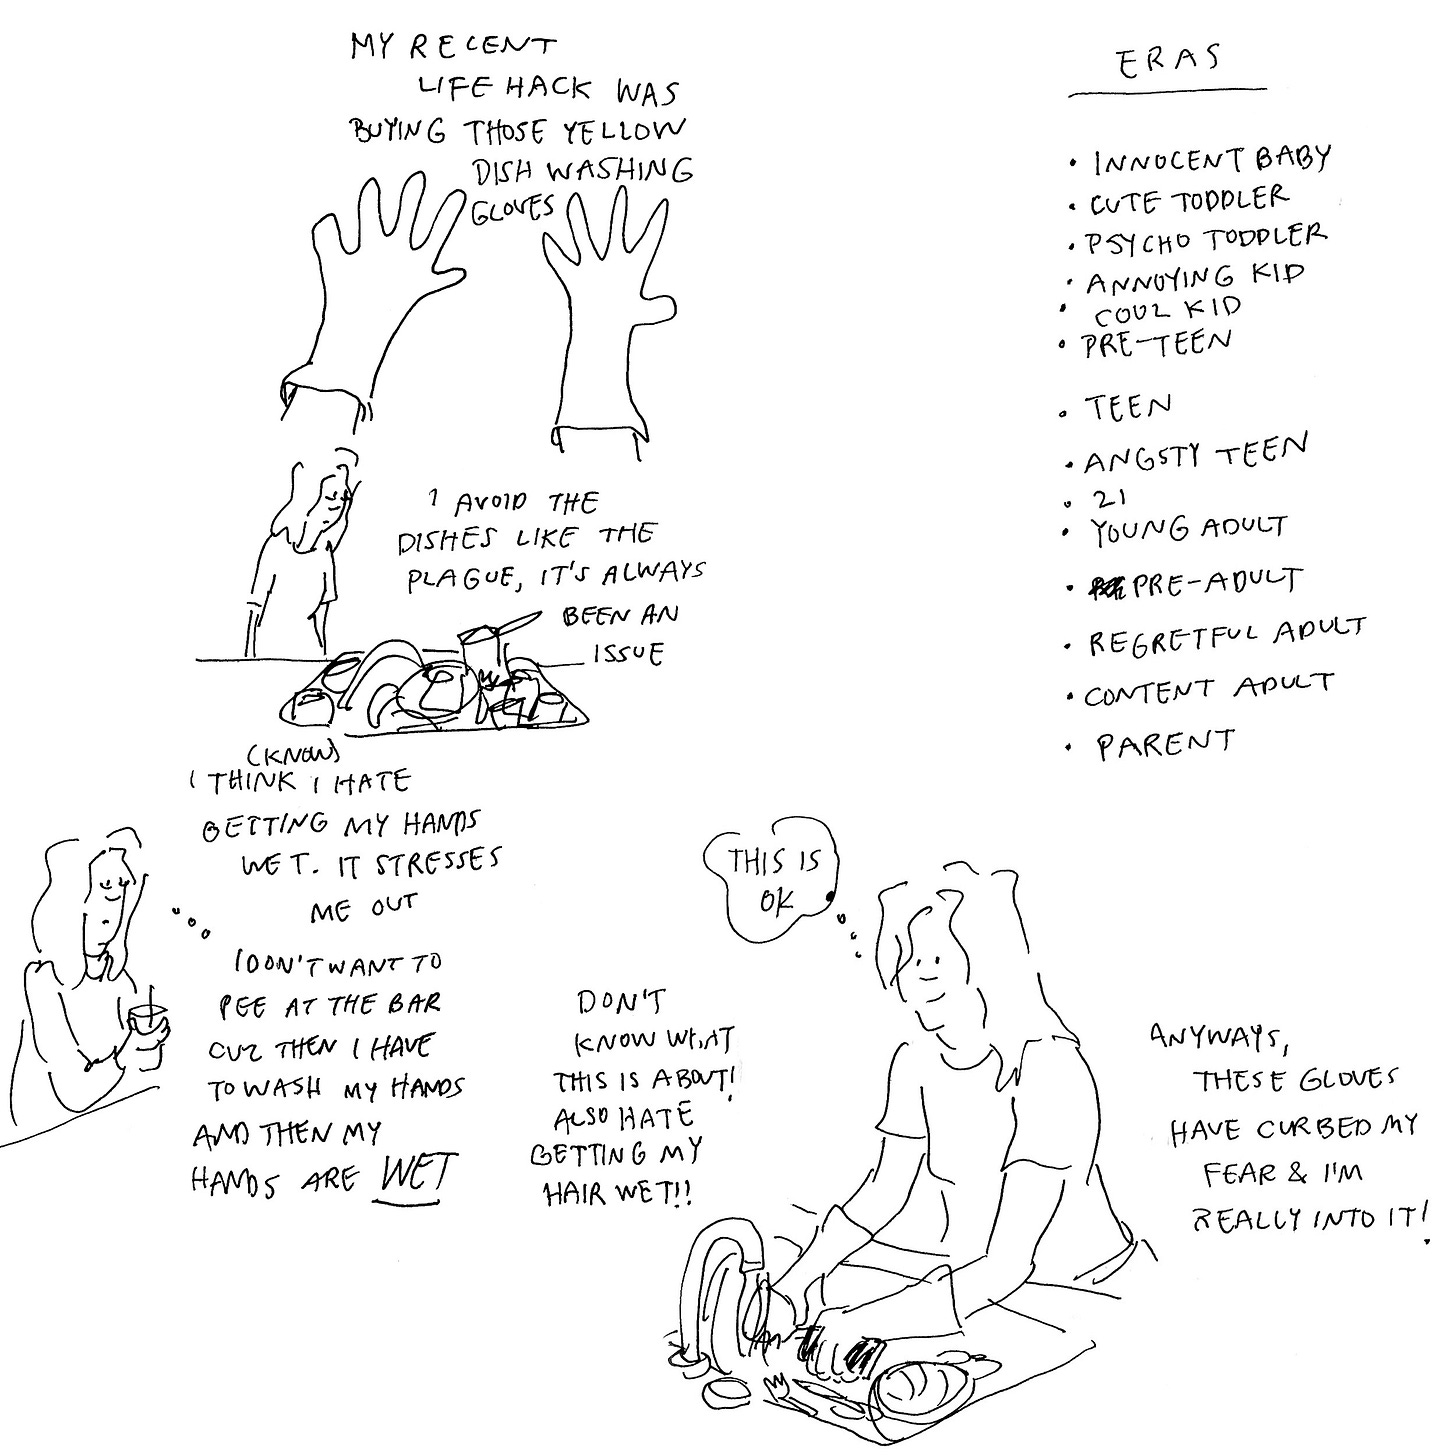 MY RECENT
LIFE HACK WAS
BUYING THOSE YELLOW
DISH WASHING
GLOVES
I AVOID THE
DISHES LIKE THE
PLAGUE, IT'S ALWAYS
BEEN AN
ISSUE
(KNOW)
I THINK I HATE
GETTING MY HANDS
WET. IT STRESSES
ME OUT
I DON'T WANT TO
PEE AT THE BAR
CUZ THEN I HAVE
TO WASH MY HANDS
AND THEN MY
HANDS ARE WET
DON'T
KNOW WHAT
THIS IS ABOUT!
ALSO HATE
GETTING MY
HAIR WET!!
THIS IS
OK
ANYWAYS,
THESE GLOVES
HAVE CURBED MY
FEAR & I'M
REALLY INTO IT!
ERAS
• INNOCENT BABY
• CUTE TODDLER
• PSYCHO TODDLER
• ANNOYING KID
• COOL KID
• PRE-TEEN
• TEEN
• ANGSTY TEEN
• 21
• YOUNG ADULT
• PRE-ADULT
• REGRETFUL ADULT
• CONTENT ADULT
• PARENT